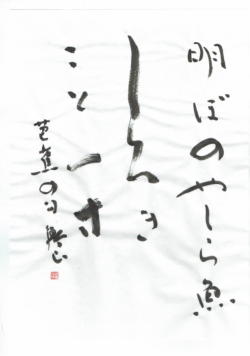 明ぼのやしら魚
しろき
こと一寸
芭蕉の句